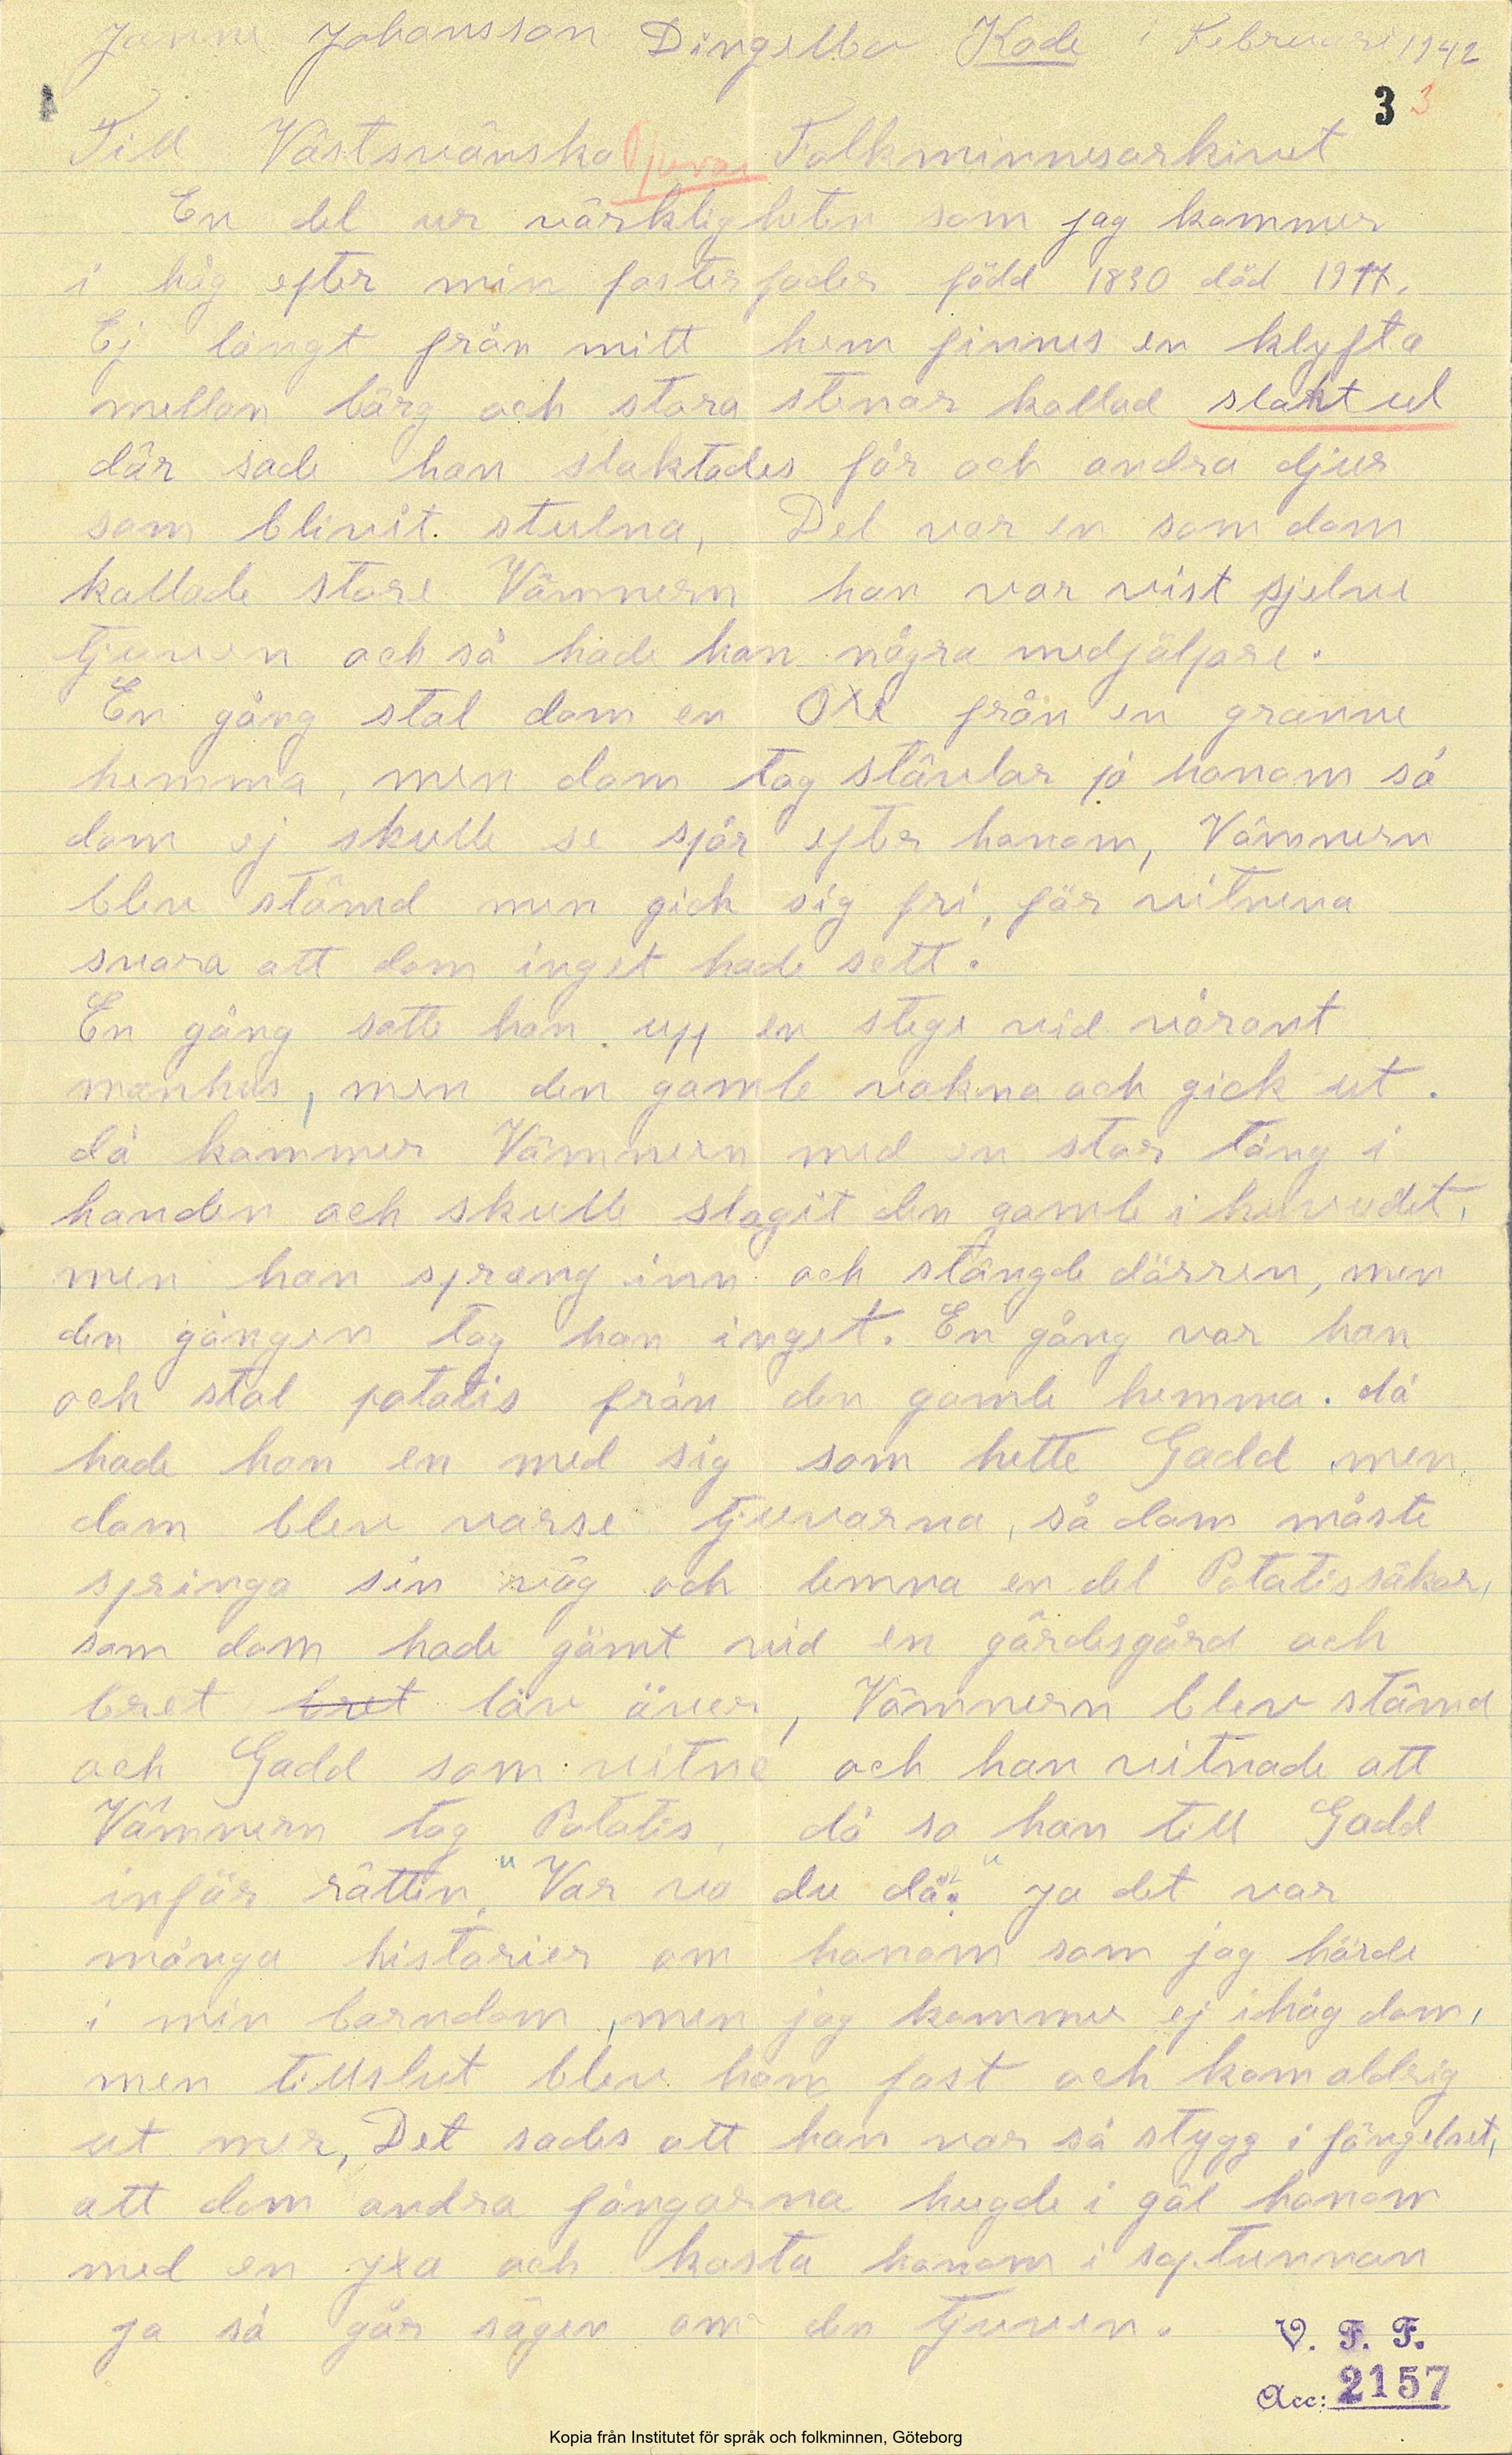 Janne Johansson Dingelbo Kode i Februari 1942
3 3
Till Västsvänska Tjuvar Folkminnesarkivet
En del ur värkligheten som jag kommer
i håg efter min fosterfader född 1830 död 1917.
Ej långt från mitt hem finnes en klyfta
mellan bärg och stora stenar kallad slaktul
där sade han slaktades får och andra djur
som blivit stulna, Det var en som dom
kallade store Vämnern han var vist sjelve
tjuven och så hade han några medjälpare.
En gång stal dom en Oxe från en granne
hemma, men dom tog stövlar på honom så
dom ej skulle se spår efter honom, Vämnern
blev stämd men gick sig fri, för vitnena
svara att dom inget hade sett.
En gång satte han upp en stege vid vårant
manhus, men den gamle vakna och gick ut.
då kommer Vämnern med en stor tång i
handen och skulle slagit den gamle i huvudet,
men han sprang inn och stängde dörren, men
den gången tog han inget. En gång var han
och stal potatis från den gamle hemma. då
hade han en med sig som hette Gadd men
dom blev varse tjuvarna, så dom måste
springa sin väg och lemna en del Potatissäkar,
som dom hade gömt vid en gärdesgård och
bret bret löv över, Vämnern blev stämd
och Gadd som vitne och han vitnade att
Vämnern tog Potatis, då sa han till Gadd
inför rätten, "Var va du då?" ja det var
många historier om honom som jag hörde
i min barndom, men jag kommer ej ihåg dom,
men tillslut blev han fast och kom aldrig
ut mer, Det sades att han var så stygg i fängelset,
att dom andra fångarna hugde i gäl honom
med en yxa och kasta honom i soptunnan
ja så går sägen om den tjuven.
V. F. F.
Acc: 2157
Kopia från Institutet för språk och folkminnen, Göteborg